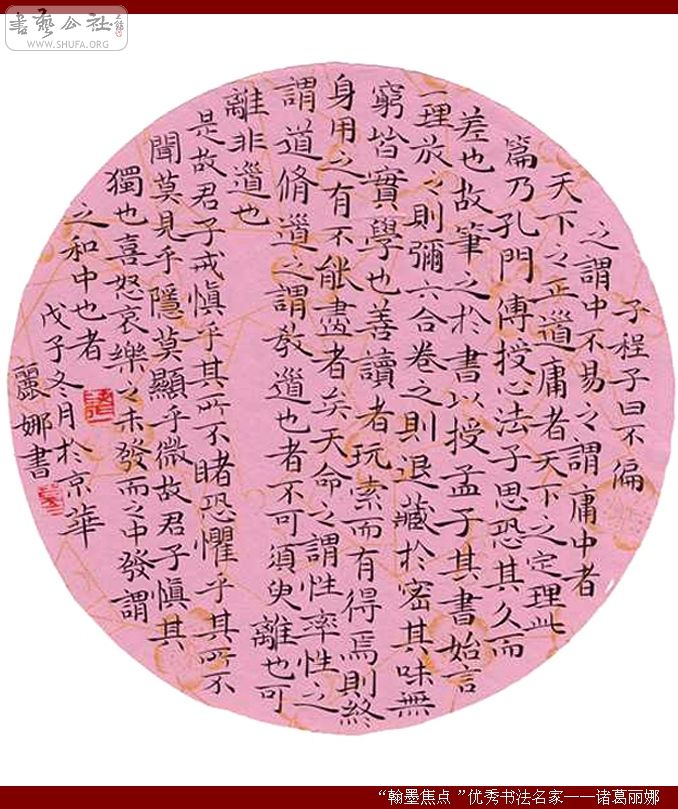 書藝公社
WWW.SHUFA.ORG
子程子曰不偏
之謂中不易之謂庸中者
天下之正道庸者天下之定理此
篇乃孔門傳授心法子思恐其久而
差也故筆之於書以授孟子其書始言
一理放之則彌六合卷之則退藏於密其味無
窮皆實學也善讀者玩索而有得焉則終
身用之有不能盡者矣天命之謂性率性之
謂道脩道之謂教道也者不可須臾離也可
離非道也
是故君子戒慎乎其所不睹恐懼乎其所不
聞莫見乎隱莫顯乎微故君子慎其
獨也喜怒哀樂之未發而之中發謂
之和中也者
戊子冬月於京華
麗娜書
“翰墨焦点 ”优秀书法名家——诸葛丽娜